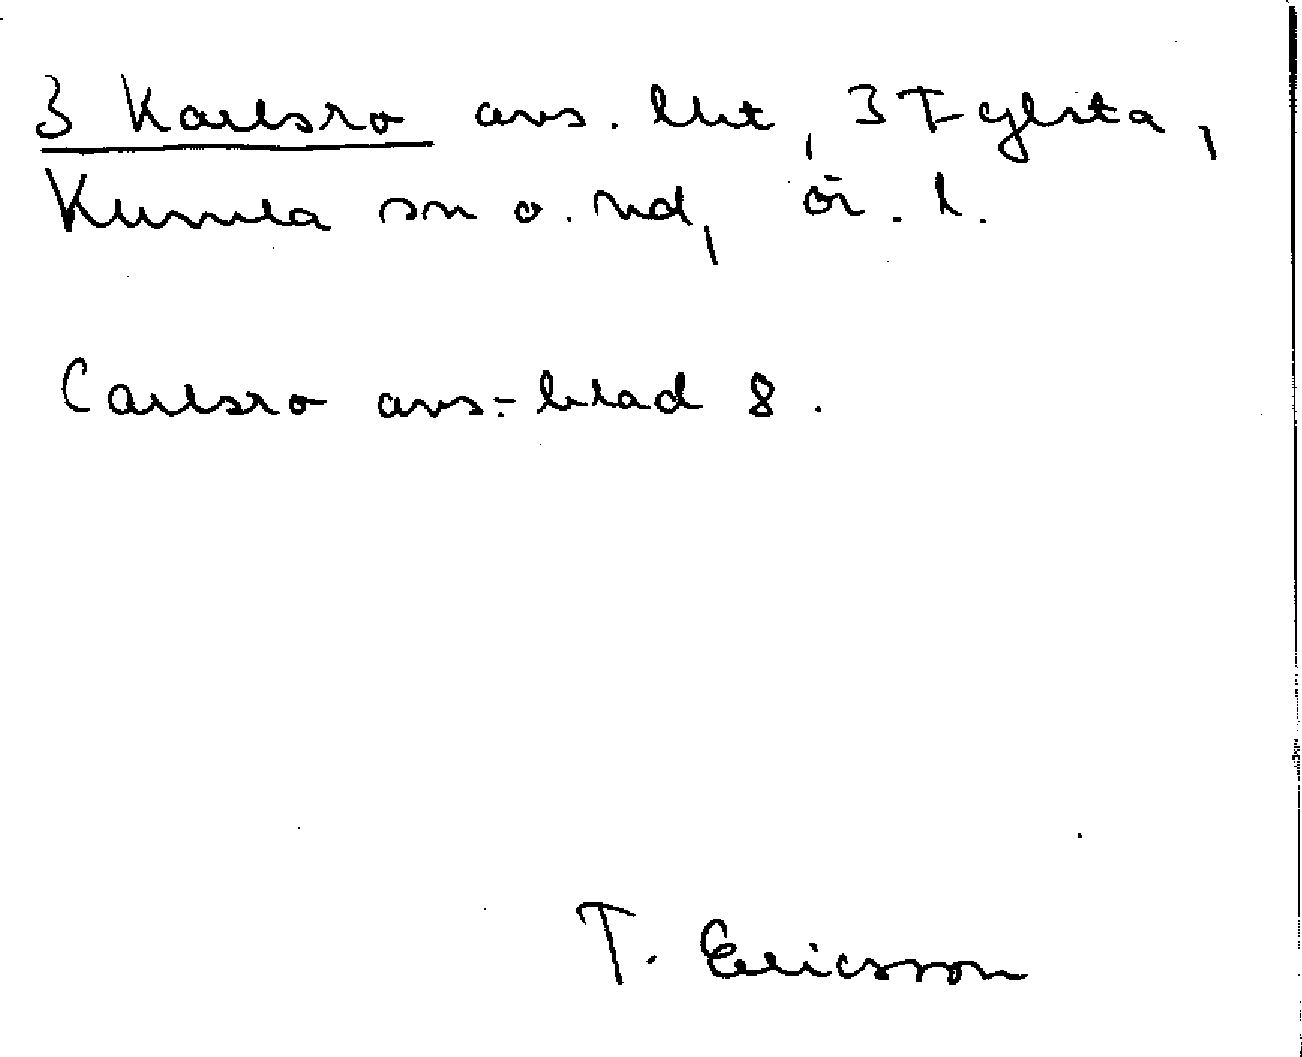 3 Karlsro avs. lht, 3 Fylsta,
Kumla sn o. hd, ör. l.
Carlsro avs.-blad 8.
T. Ericsson